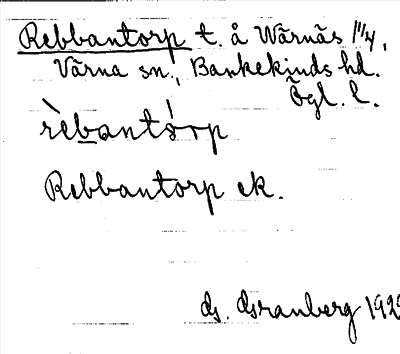 Rebbantorp t. å Värnäs 1/4,
Värna sn., Bankekinds hd.
Ögl. l.
rèbantórp
Rebbantorp ek.